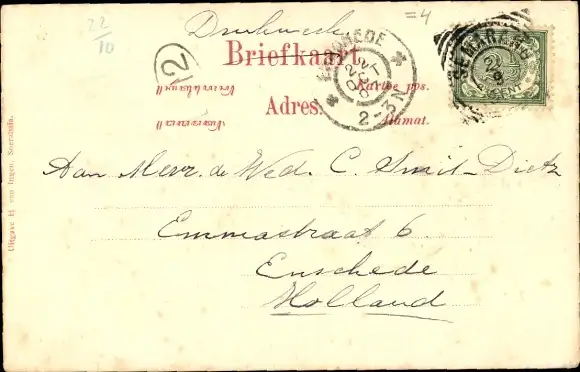 22/10
=4
Drukwerk
Briefkaart
12
Kartoe pos.
Adres.
Alamat.
ENSCHEDE
2-3N
SEMARANG
2½
CENT
Aan Mevr. de Wed. C. Smit-Dietz
Emmastraat 6
Enschede
Holland
Uitgave H van Ingen, Soerabaia.